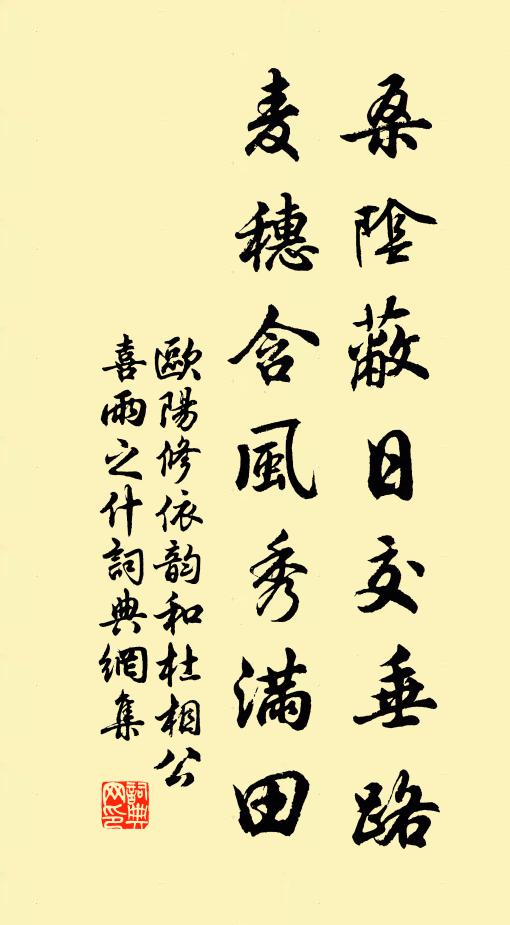 桑陰蔽日交垂路
麦穗含風秀滿田
歐陽修依韵和杜相公
喜雨之什詞典網集
詞典网印